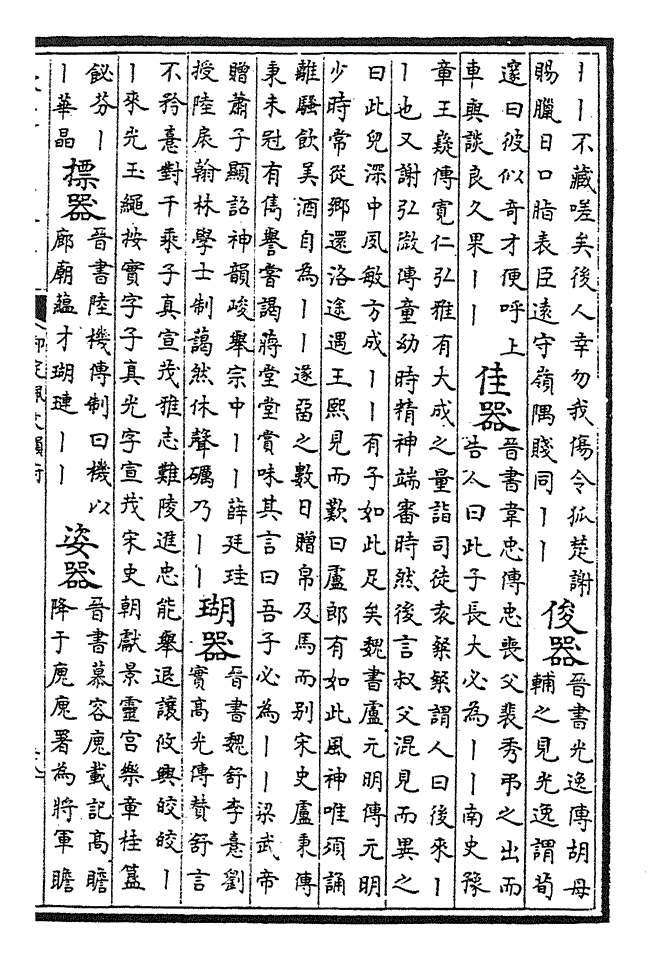 丨丨不藏嗟矣後人幸勿我傷令狐楚謝
賜臘日口脂表臣遠守嶺隅賤同丨丨
俊器
晉書光逸傳胡母
輔之見光逸謂荀
邃曰彼似奇才便呼上
車與談良久果丨丨
佳器
晉書韋忠傳忠喪父裴秀弔之出而
告人曰此子長大必為丨丨南史豫
章王嶷傳寬仁弘雅有大成之量詣司徒袁粲粲謂人曰後來丨
丨也又謝弘㣲傳童幼時精神端審時然後言叔父混見而異之
曰此兒深中夙敏方成丨丨有子如此足矣魏書盧元明傳元明
少時常從鄉還洛途遇王熙見而歎曰盧郎有如此風神唯須誦
離騷飲美酒自為丨丨遂留之數日贈帛及馬而别宋史盧秉傳
秉未冠有雋譽嘗謁蔣堂堂賞味其言曰吾子必為丨丨梁武帝
贈蕭子顯詔神韻峻舉宗中丨丨薛廷珪
授陸扆翰林學士制藹然休聲礪乃丨丨
瑚器
晉書魏舒李憙劉
實高光傳賛舒言
不矜憙對千乘子真宣茂雅志難陵進忠能舉退讓攸興皎皎丨
丨來光玉繩按實字子真光字宣茂宋史朝獻景靈宫樂章桂簋
飶芬丨
丨華晶
摽器
晉書陸機傳制曰機以
廊廟蘊才瑚璉丨丨
姿器
晉書慕容廆載記高瞻
降于廆廆署為將軍瞻